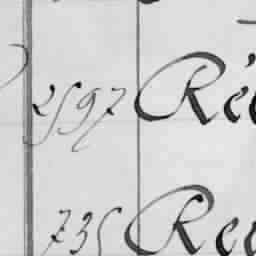 2597 Ré
735 Re